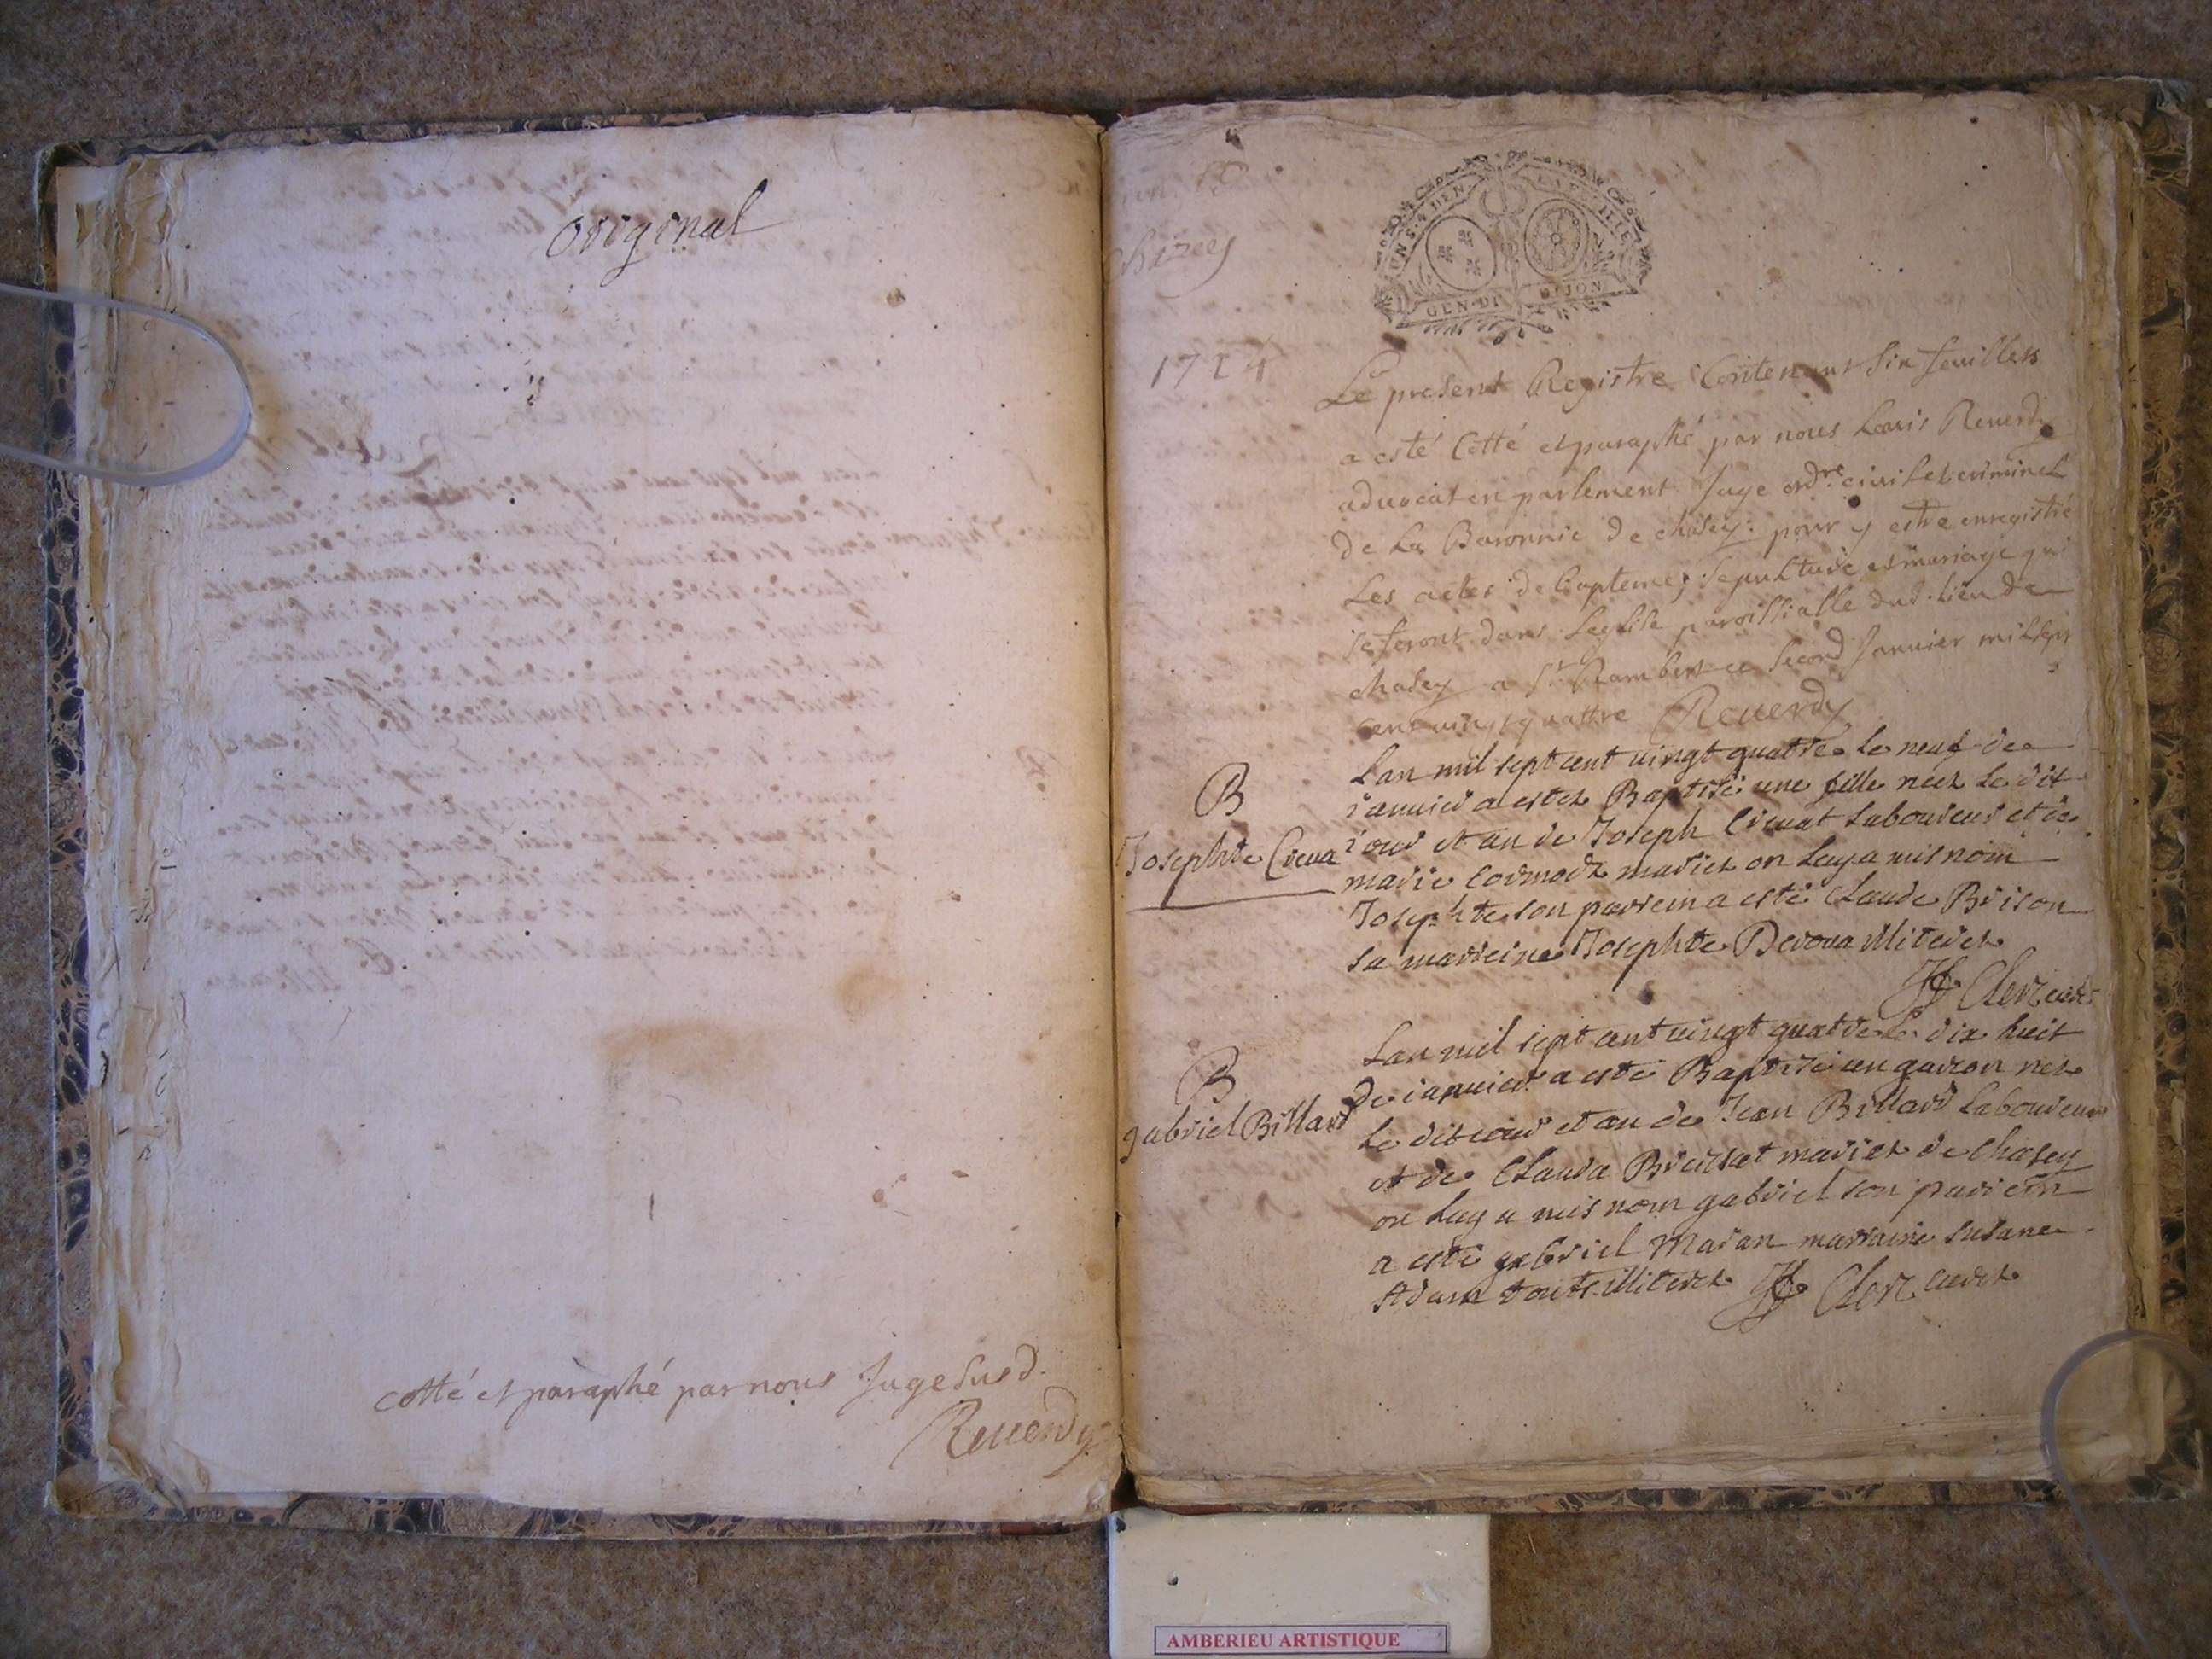 original
cotté et paraphé par nous Juge Susd.
Reuerdy
Chazey
GEN. DI DIJON
1724
Le present Registre Contenant Six feuillets
a esté Cotté et paraphé par nous Louis Reuerdy
aduocat en parlement Juge ordre ciuil et criminel
de La Baronnie de chasey: pour y estre enregistré
Les actes de bapteme, Sepulture et mariage qui
se feront dans Leglise paroissialle dud. lieu de
chasey a St Rambert ce Second Januier mil sept
cent uingt quattre Reuerdy
B
Josephte Creua
Lan mil sept cent uingt quatre le neuf de
ianuier a estez Baptisé une fille neez le dit
iour et an de Joseph Creuat Laboureur et de
marie Cormodz mariez on Luy a mis nom
Josephte son parrein a esté Claude Brison
sa marreine Josephte Deroua illiterez
Clerc curez
B
gabriel Billard
Lan mil sept cent uingt quatre le dix huit
de ianuier a esté Baptisé un garcon nez
le dit iour et an de Jean Billard Laboureur
et de Clauda Bruisat mariez de Chasey
on Luy a mis nom gabriel son parrein
a esté gabriel Maran marraine susane
Adam touts illiterez Clerc curez
AMBERIEU ARTISTIQUE